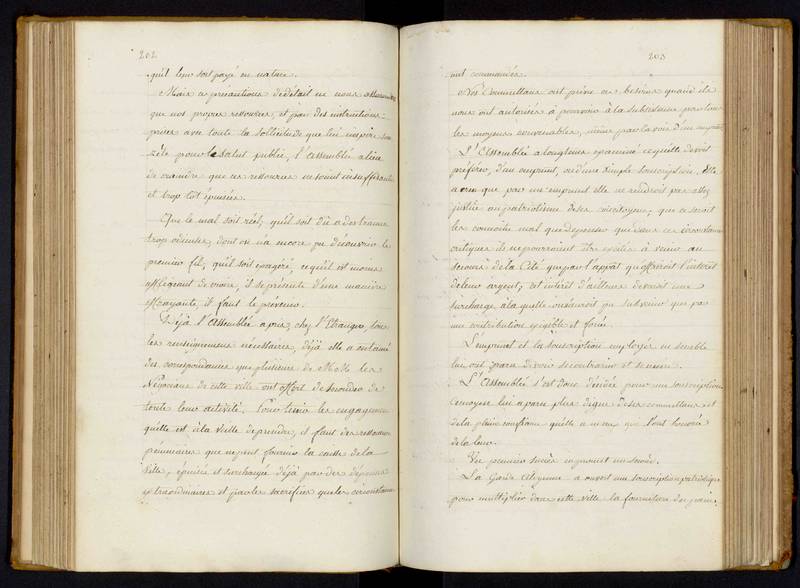 202
qu'il leur soit payé en nature.
Mais ces précautions de détail ne nous
que nos propres ressources, et par des instructions
prises avec toute la sollicitude que lui inspire son
zèle pour le salut public, l'Assemblée a lieu
de craindre que ces ressources ne soient insuffisantes
et trop tôt épuisées.
Que le mal soit réel, qu'il soit dû a des trames
trop odieuses, dont on n'a encore pu découvrir le
premier fil, qu'il soit exagéré, ce qu'il est moins
affligeant de croire, il se présente d'une manière
effrayante, il faut le prévenir.
Déjà l'Assemblée a pris, chez l'Etranger, tous
les renseignemens nécessaires, déjà elle a entamé
des correspondances que plusieurs de MM. les
Négocians de cette ville ont offert de seconder de
toute leur activité. Pour tenir les engagemens
qu'elle est à la veille de prendre, il faut des ressources
pécuniaires que ne peut fournir la caisse de la
ville, épuisée et surchargée déjà par des dépenses
extraordinaires et par les sacrifices que les circonstances
203
ont commandés.
Nos Commettans ont prévu ces besoins quand ils
nous ont autorisés à pourvoir à la subsistance par tous
les moyens convenables, même par la voie d'un emprunt.
L'Assemblée a longtems examiné ce qu'elle devoit
préférer, d'un emprunt, ou d'une simple souscription. Elle
a cru que par un emprunt elle ne rendroit pas assez
justice au patriotisme de ses concitoyens, que ce seroit
les connoitre mal que de penser que dans ces circonstances
critiques ils ne pourroient être excités à venir au
secours de la Cité que par l'appât qu'offriroit l'intérêt
de leur argent; cet intérêt d'ailleurs devenoit une
surcharge à la quelle on n'auroit pu subvenir que par
une contribution exigible et forcée.
L'emprunt et la souscription employés ensemble
lui ont paru devoir se contrarier et se nuire.
L'Assemblée s'est donc décidée pour une souscription
ce moyen lui a paru plus digne de ses commettans et
de la pleine confiance qu'elle a en eux, que l'ont honorée
de la leur.
Un premier succès en promet un second.
La Garde Citoyenne a ouvert une souscription patriotique
pour multiplier dans cette ville la fourniture du pain,